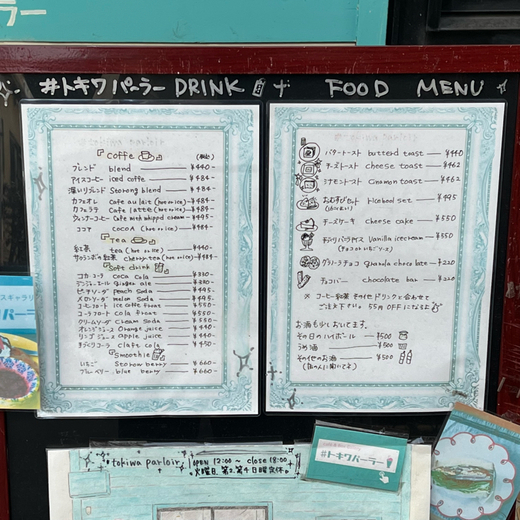 #トキワパーラー DRINK
『coffe』 (税込)
ブレンド blend ¥440-
アイスコーヒー iced coffe ¥484-
深いりブレンド Storong blend ¥484-
カフェオレ Cafe au lait (hot or ice) ¥484-
カフェラテ Cafe latte (hot or ice) ¥484-
Cafe with whipped cream ¥495-
ココア COCOA (hot or ice) ¥484-
『Tea』
紅茶 tea (hot or ice) ¥440-
サクランボの紅茶 cherry tea (hot or ice) ¥484-
『Soft drink』
コカ・コーラ coca cola ¥330-
ジンジャーエール Ginger ale ¥330-
ピーチソーダ peach Soda ¥495-
メロンソーダ melon Soda ¥495-
コーヒーフロート ice coffe froat ¥550-
コーラフロート Cola froat ¥550-
クリームソーダ Cream Soda ¥550-
オレンジジュース Orange juice ¥440-
リンゴジュース apple juice ¥440-
クラフトコーラ Claft cola ¥450-
『Smoothie』
いちご Storow berry ¥660-
ブルーベリー blue berry ¥660-
FOOD MENU
バタートースト butterd toast ¥440
チーズトースト cheese toast ¥462
シナモントースト Cinamon toast ¥462
おむすびセット riceball set ¥495
チーズケーキ cheese cake ¥550
Vanilla icecream ¥350
(チョコ or いちごソース)
グラノーラチョコ granola chocolate ¥220
チョコバー chocolate bar ¥220
※ コーヒー 紅茶 その他ドリンクと合わせて
ご注文下さい。 55円 OFFになるよ
お酒も少しおいてます。
その日のハイボール ¥500
うめ酒 ¥500
その他のお酒 ¥500
#トキワパーラー
tokiwa parloir OPEN 12:00~ close 18:00
火曜日、第2、第4日曜定休